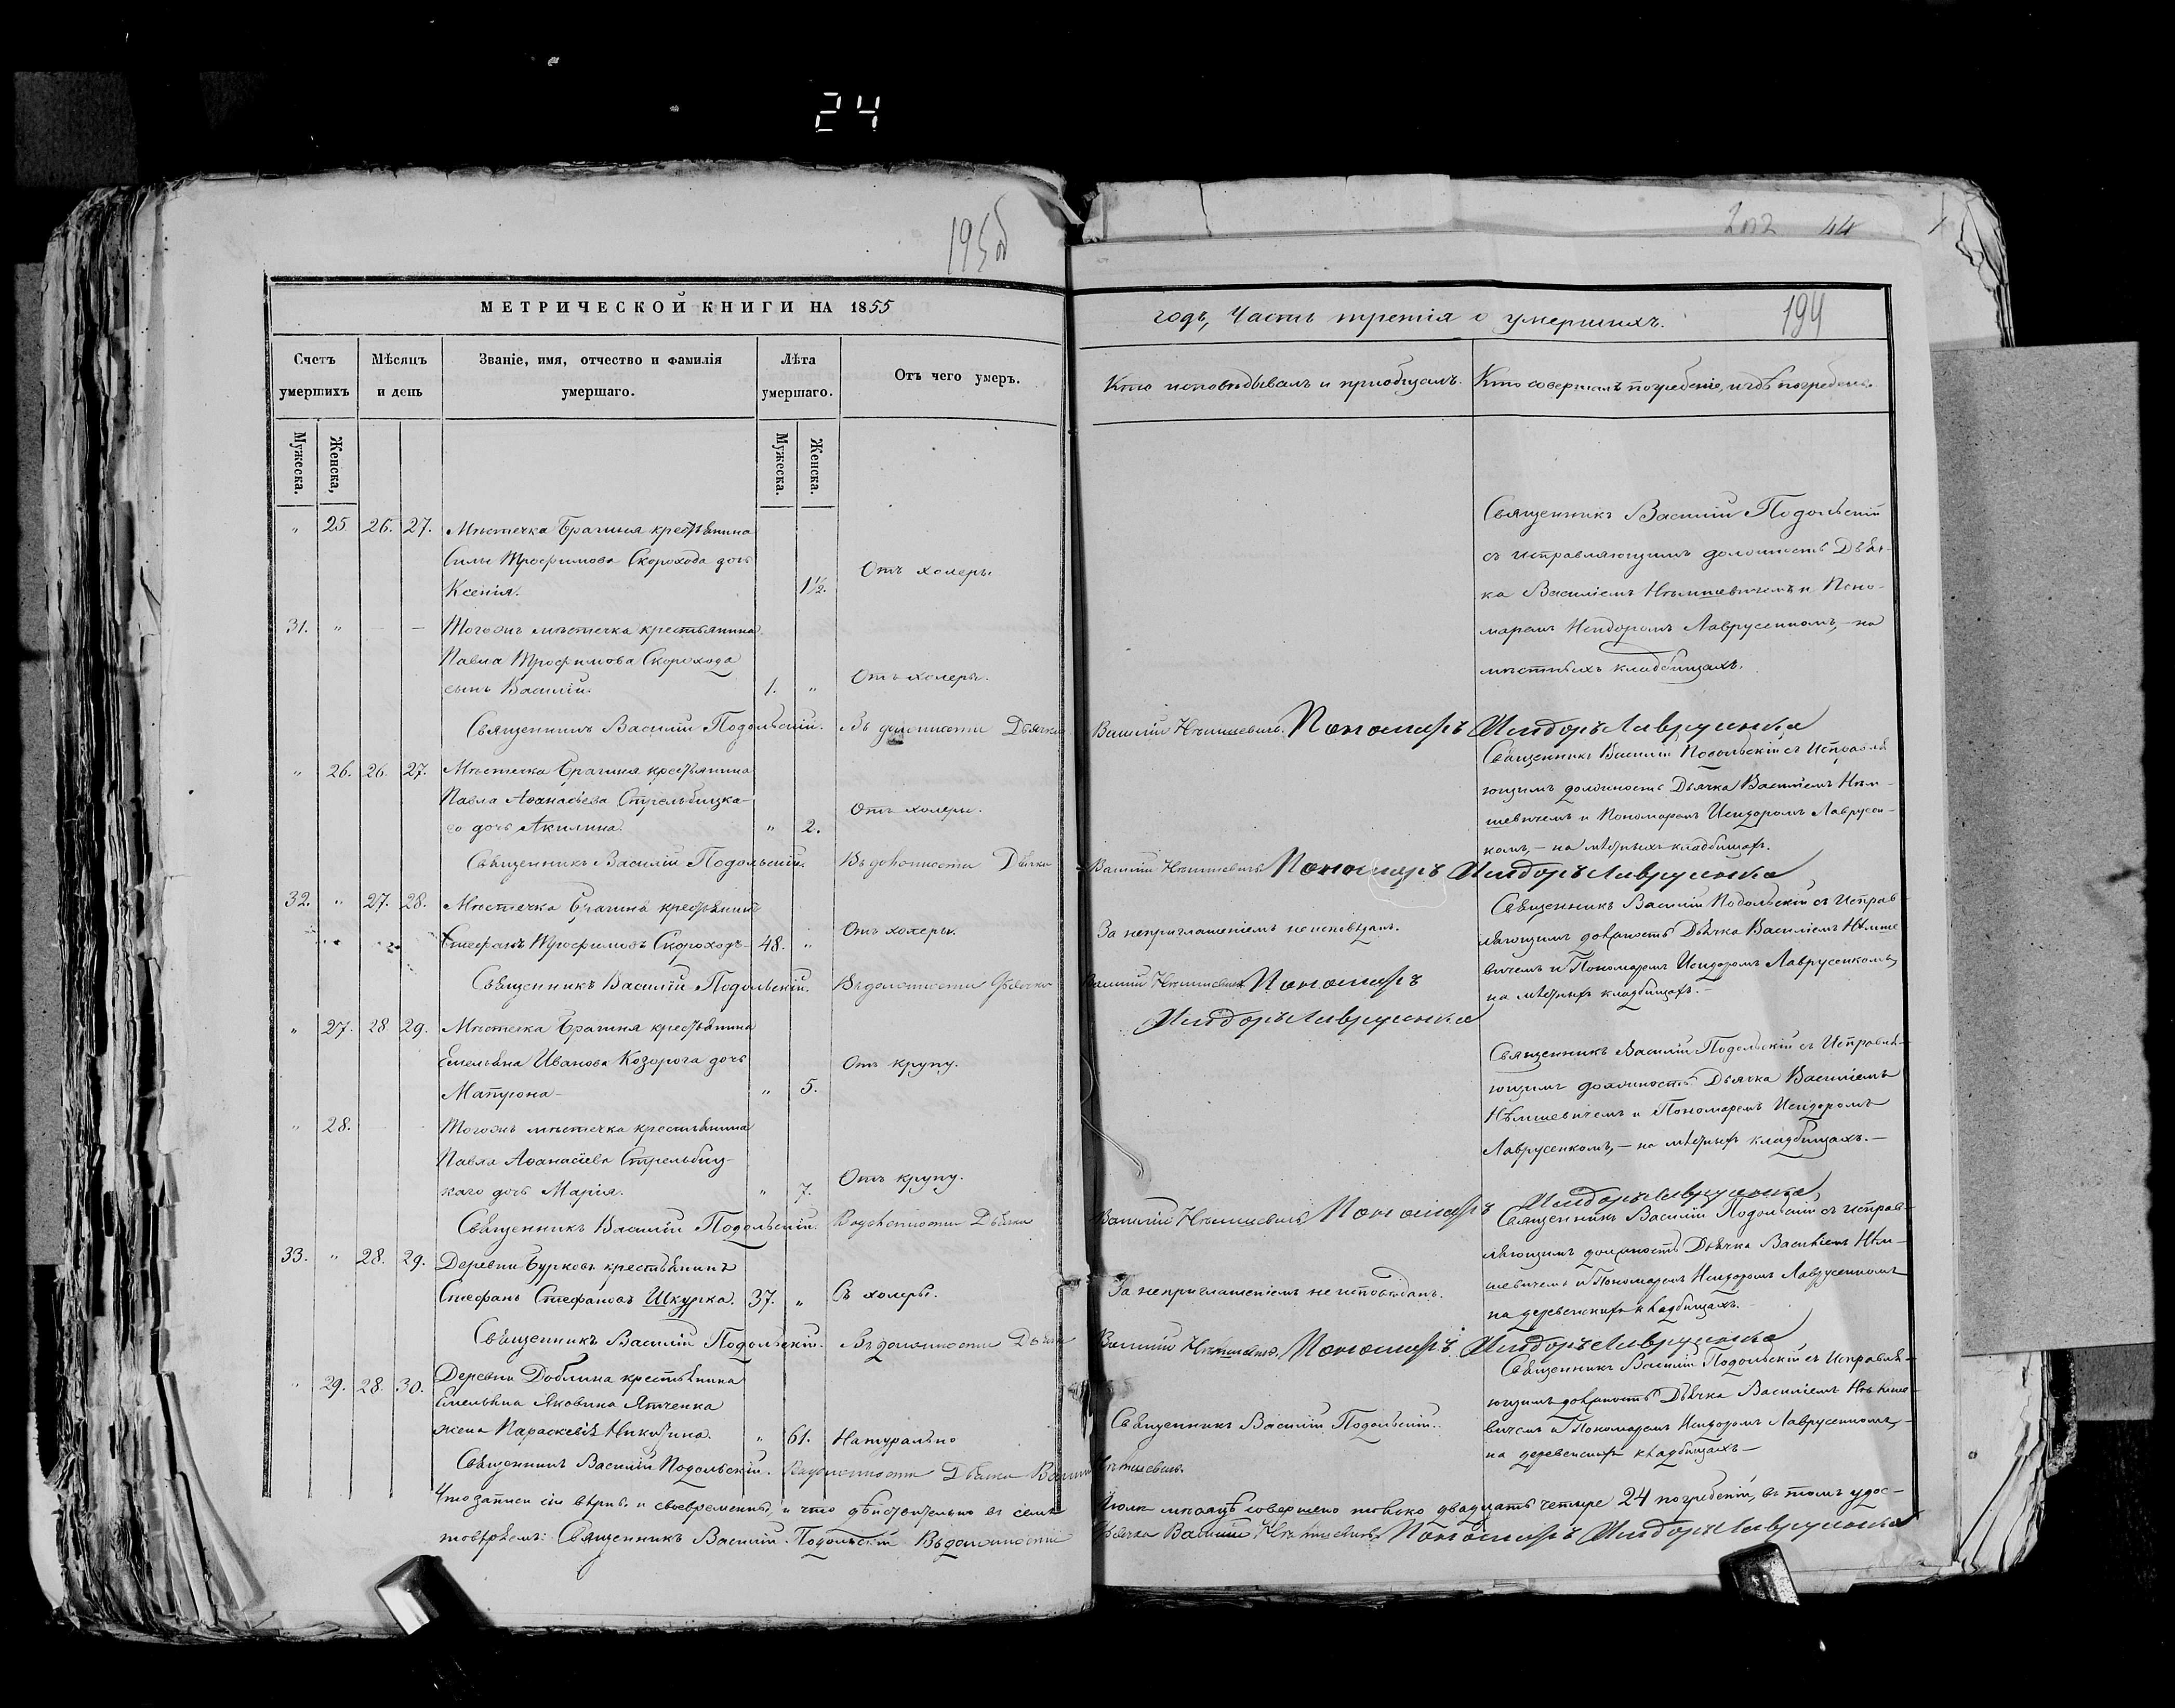 24
195об
202 44
МЕТРИЧЕСКОЙ КНИГИ НА 1855
годъ, Часть третія о умершихъ.
194
Счетъ умершихъ
Мѣсяцъ и день
Званіе, имя, отчество и фамилія умершаго.
Лѣта умершаго.
Отъ чего умеръ.
Кто исповѣдывалъ и пріобщалъ.
Кто совершалъ погребеніе, и гдѣ погребены.
Мужеска.
Женска,
Мужеска.
Женска.
" 25 26. 27. Мѣстечка Брагиня крестьянина
Силы Трофимова Скорохода дочь
Ксенія. 1½. Отъ холеры
Священникъ Василій Подольскій
съ исправляющимъ должность Дьяч-
ка Василіемъ Нѣмшевичемъ и Поно-
маремъ Исидоромъ Лаврусенкомъ, — на
мѣстныхъ кладбищахъ.
31. " — — Тогожъ мѣстечка крестьянина
Павла Трофимова Скорохода
сынъ Василій. 1. " Отъ холеры.
Священникъ Василій Подольскій. Въ должности Дьячка Василій Нѣмшевичъ. Пономарь Исидоръ Лаврусенко
" 26. 26. 27. Мѣстечка Брагиня крестьянина
Павла Аѳанасіева Стрельбицка-
го дочь Акилина. " 2. Отъ холеры.
Священникъ Василій Подольскій съ Исправля
ющимъ должность Дьячка Василіемъ Нѣм-
шевичемъ и Пономаремъ Исидоромъ Лаврусен-
комъ, — на мѣстныхъ кладбищахъ.
Священникъ Василій Подольскій. Въ должности Дьячка Василій Нѣмшевичъ Пономарь Исидоръ Лаврусенко
32. " 27. 28. Мѣстечка Брагиня крестьянинъ
Стефанъ Трофимовъ Скороходъ 48. " Отъ холеры.
За неприглашеніемъ не исповѣданъ.
Священникъ Василій Подольскій съ Исправ
ляющимъ должность Дьячка Василіемъ Нѣмше
вичемъ и Пономаремъ Исидоромъ Лаврусенкомъ,
на мѣстныхъ кладбищахъ. —
Священникъ Василій Подольскій. Въ должности Дьячка Василій Нѣмшевичъ Пономарь
Исидоръ Лаврусенко
" 27. 28 29. Мѣстечка Брагиня крестьянина
Емельяна Иванова Козорога дочь
Матрона — " 5. Отъ крупу.
Священникъ Василій Подольскій съ Исправля-
ющимъ должность Дьячка Василіемъ
Нѣмшевичемъ и Пономаремъ Исидоромъ
Лаврусенкомъ, — на мѣстныхъ кладбищахъ. —
" 28. Тогожъ мѣстечка крестьянина
Павла Аѳанасіева Стрельбиц-
каго дочь Марія. " 7. Отъ крупу.
Священникъ Василій Подольскій. Въ должности Дьячка Василій Нѣмшевичъ Пономарь Исидоръ Лаврусенко
33. " 28. 29. Деревни Бурковъ крестьянинъ
Стефанъ Стефановъ Шкурка. 37. " Съ холеры.
За неприглашеніемъ не исповѣданъ.
Священникъ Василій Подольскій съ исправ-
ляющимъ должность Дьячка Василіемъ Нѣм-
шевичемъ и Пономаремъ Исидоромъ Лаврусенкомъ
на деревенскихъ кладбищахъ. —
Священникъ Василій Подольскій. Въ должности Дьячка Василій Нѣмшевичъ. Пономарь Исидоръ Лаврусенко
" 29. 28. 30. Деревни Доблина крестьянина
Емельяна Яковина Ятченка
жена Параскевія Никитина. " 61. Натурально
Священникъ Василій Подольскій.
Священникъ Василій Подольскій съ Исправля-
ющимъ должность Дьячка Василіемъ Нѣмше-
вичемъ и Пономаремъ Исидоромъ Лаврусенкомъ, —
на деревенскихъ кладбищахъ —
Священникъ Василій Подольскій. Въ должности Дьячка Василій Нѣмшевичъ.
Что записи сіи вѣрны и своевременны, и что дѣйствительно въ семъ Іюлѣ мѣсяцѣ совершено только двадцать четыре 24 погребеній, въ томъ удос-
товѣряемъ: Священникъ Василій Подольскій Въ должности Дьячка Василій Нѣмшевичъ Пономарь Исидоръ Лаврусенко